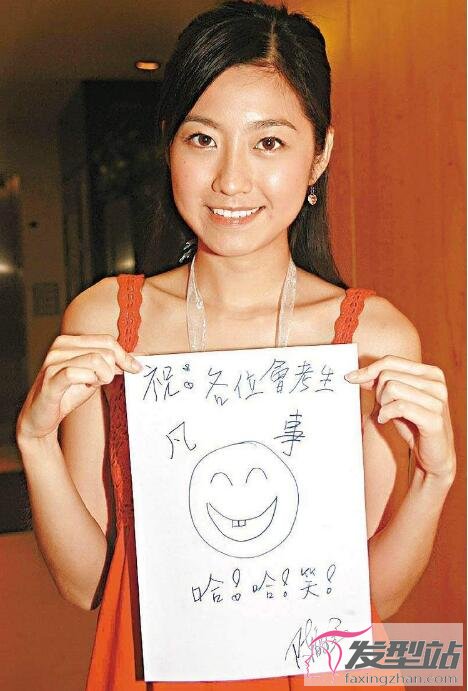 祝：各位會考生
凡 事
哈！哈！笑！
发型站
faxingzhan.com